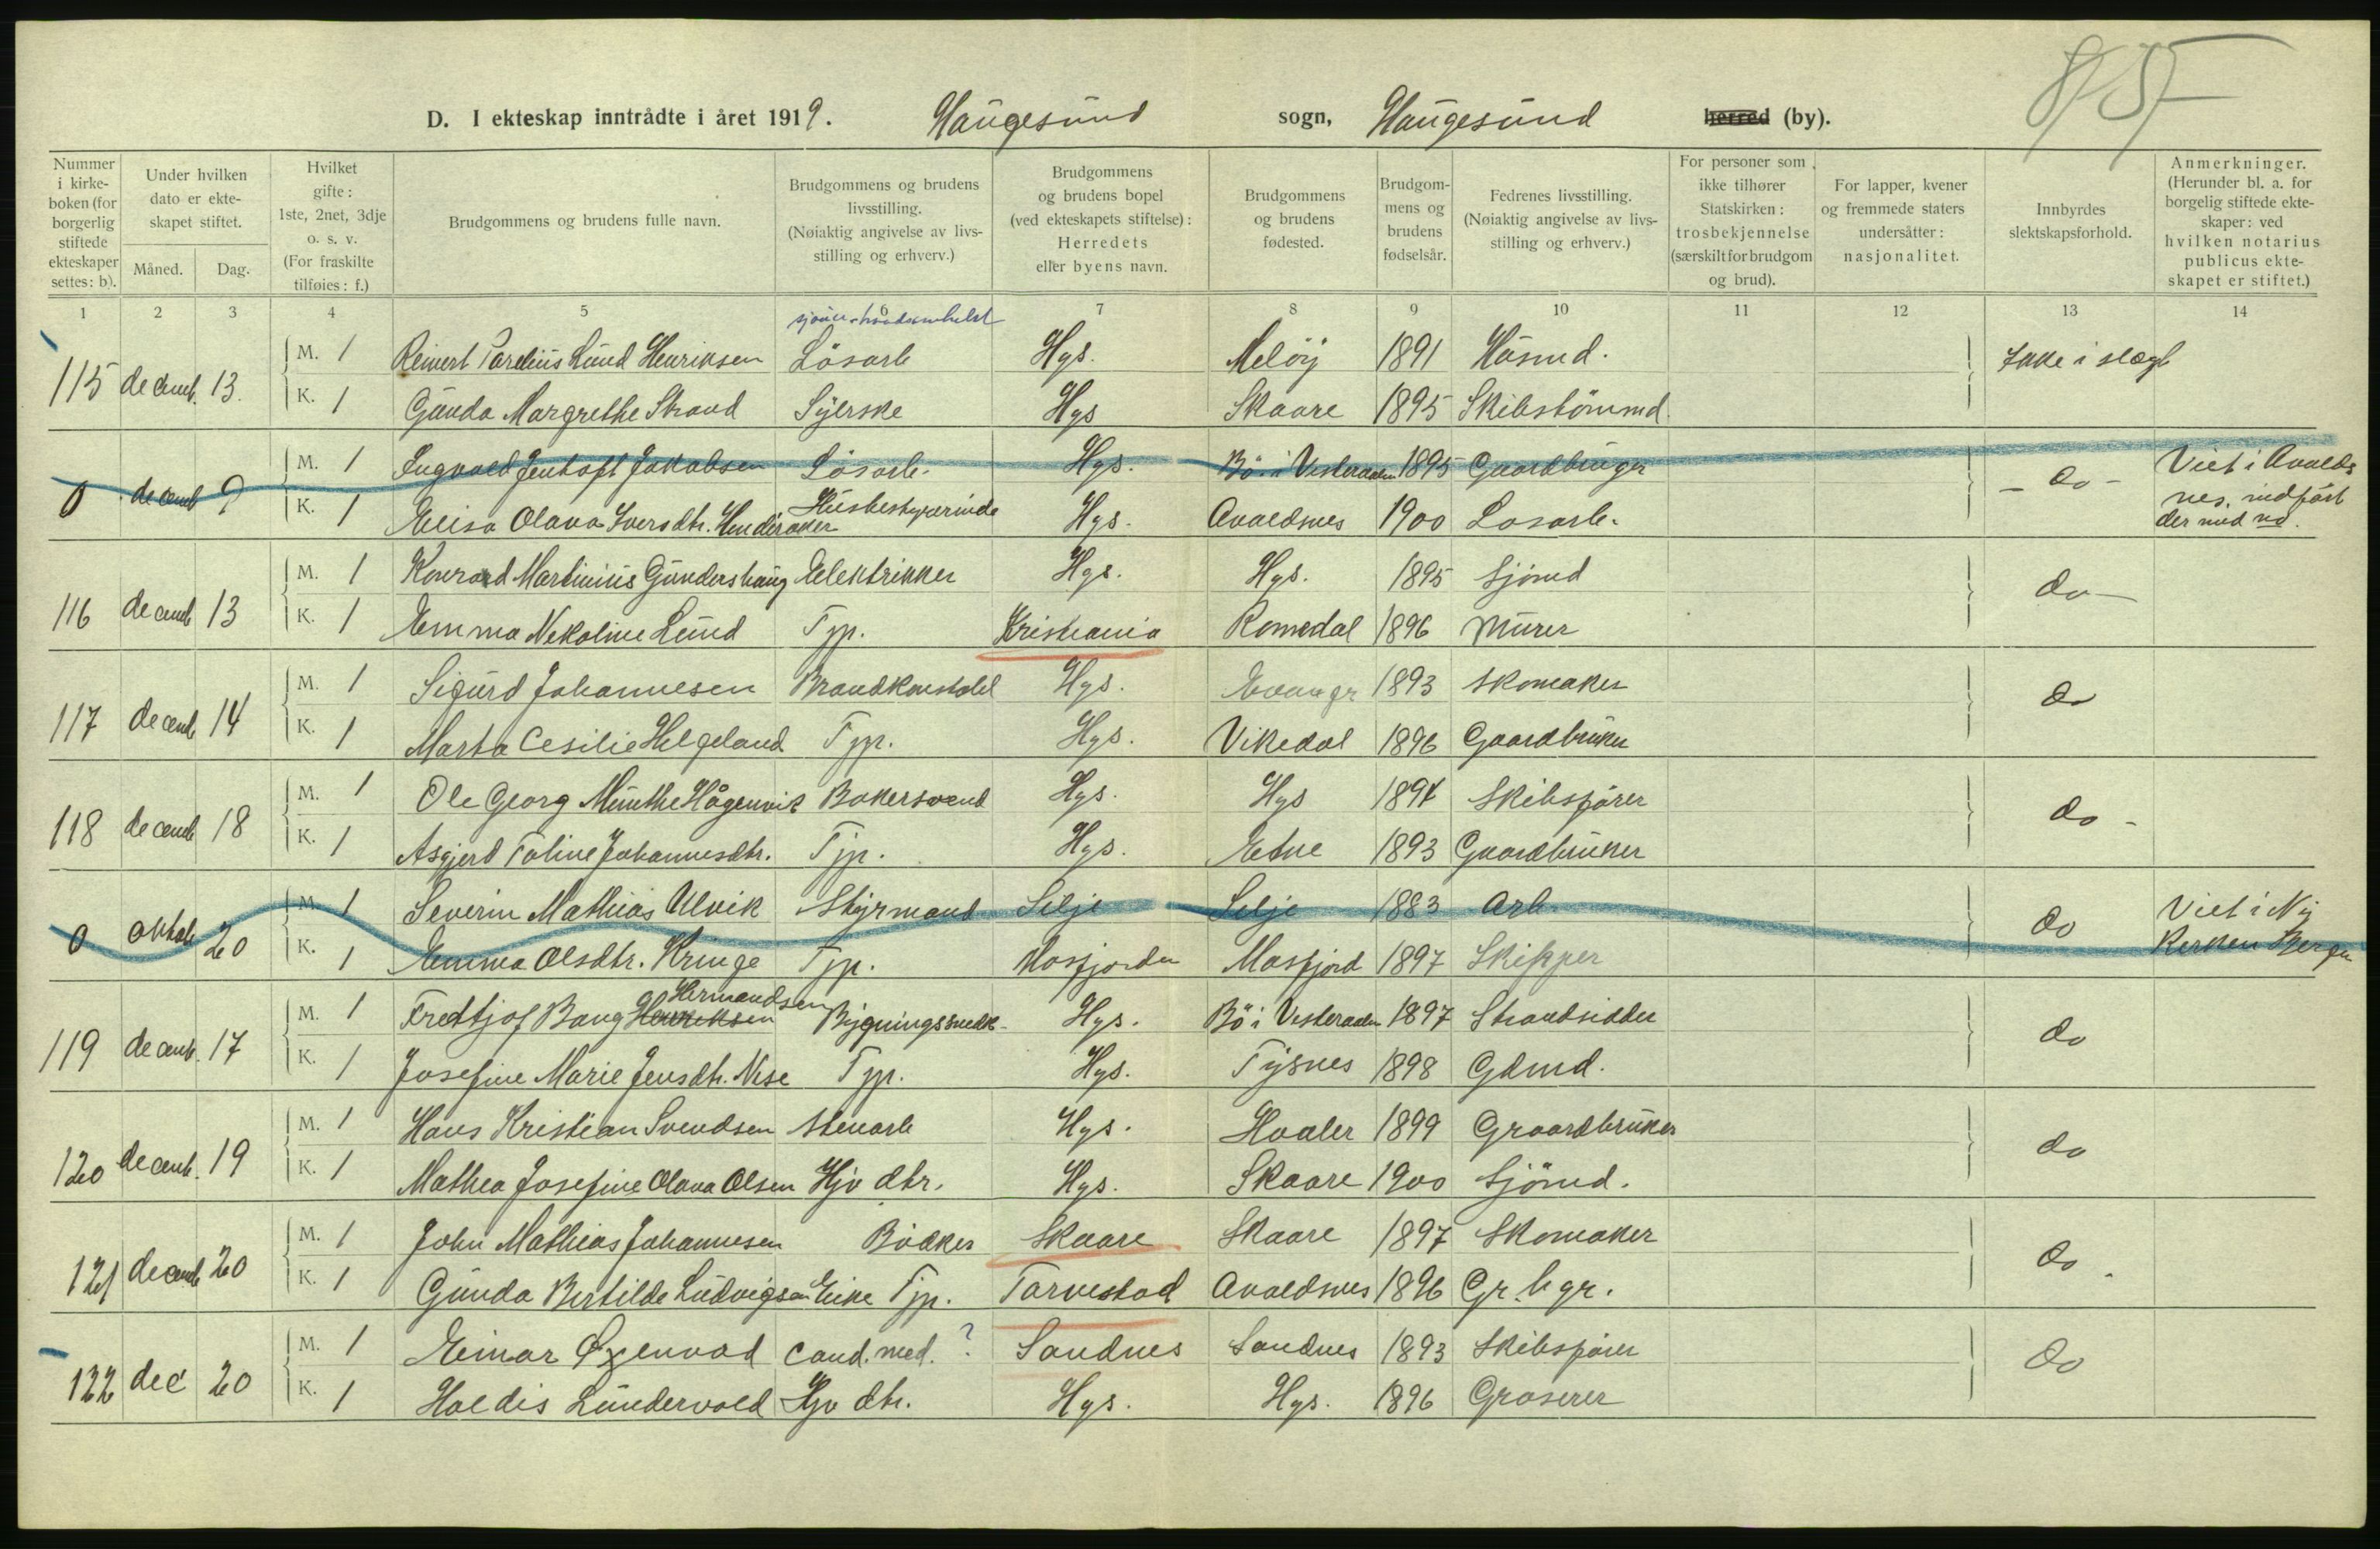 8/5
D. I ekteskap inntrådte i året 1919. Haugesund sogn, Haugesund herred (by).
Nummer i kirkeboken (for borgerlig stiftede ekteskaper settes: b).
Under hvilken dato er ekteskapet stiftet.
Måned. Dag.
Hvilket gifte: 1ste, 2net, 3dje o. s. v. (For fraskilte tilføies: f.)
Brudgommens og brudens fulle navn.
Brudgommens og brudens livsstilling. (Nøiaktig angivelse av livsstilling og erhverv.)
Brudgommens og brudens bopel (ved ekteskapets stiftelse): Herredets eller byens navn.
Brudgommens og brudens fødested.
Brudgommens og brudens fødselsår.
Fedrenes livsstilling. (Nøiaktig angivelse av livsstilling og erhverv.)
For personer som ikke tilhører Statskirken: trosbekjennelse (særskilt for brudgom og brud).
For lapper, kvener og fremmede staters undersåtter: nasjonalitet.
Innbyrdes slektskapsforhold.
Anmerkninger. (Herunder bl. a. for borgelig stiftede ekteskaper: ved hvilken notarius publicus ekteskapet er stiftet.)
1 2 3 4 5 6 7 8 9 10 11 12 13 14
115 decemb. 13. M. 1 Reinert Parelius Lund Henriksen Lösarb Hgs. Melöy 1891 Husmd. Ikke i slægt
K. 1 Gunda Margrethe Strand Syerske Hgs Skaare 1895 Skibstömmd.
0 decemb 9 M. 1 Ingvald Jentoft Jakobsen Lösarb. Hgs. Bö i Vesteraalen 1895 Gaardbruger - do - Viet i Avalds
K. 1 Elisa Olava Iversdtr. Husbestyrerinde Hgs. Avaldsnes 1900 Losarb. nes, indført
der med no.
116 decemb 13 M. 1 Konrad Martinius Gundershaug Elektrikker Hgs. Hgs. 1895 Sjömd do -
K. 1 Emma Nekoline Lund Tjp. Kristiania Romedal 1896 Murer
117 decemb 14 M. 1 Sigurd Johannesen Brandkonstabel Hgs. Evanger 1893 Skomaker do
K. 1 Marta Cesilie Helgeland Tjp. Hgs. Vikedal 1896 Gaardbruker
118 decemb 18 M. 1 Ole Georg Munthe Hågenvik Bakersvend Hgs. Hgs 1894 Skibsfører do -
K. 1 Asgjerd Taline Johannesdtr. Tjp. Hgs. Etne 1893 Gaardbruker
0 oktob 20 M. 1 Severin Mathias Ulvik Styrmand Selje Selje 1883 Arb do Viet i Ny
K. 1 Emma Olsdtr. Kringe Tjp. Masfjorden Masfjord 1897 Skipper Kirken Bergen
Hermandsen
119 decemb. 17 M. 1 Fredtjof Bang Henriksen Bygningssnedk. Hgs. Bö i Vesteraalen 1897 Strandsidder do
K. 1 Josefine Marie Jensdtr. Nese Tjp. Hgs. Tysnes 1898 Gdmd.
120 decemb. 19 M. 1 Hans Kristian Svendsen Stenarb Hgs. Hvaler 1899 Graardbruker do
K. 1 Mathea Josefine Olava Olsen Hjv dtr. Hgs. Skaare 1900 Sjömd.
121 decemb 20 M. 1 John Mathias Johannesen Bödker Skaare Skaare 1897 Skomaker do.
K. 1 Gunda Bertilde Ludvigsen Eike Tjp. Torvestad Avaldsnes 1896 Gr. b gr.
122 dec 20 M. 1 Einar Oxenvad cand. med. ? Sandnes Sandnes 1893 Skibsfører do
K. 1 Haldis Lundervold Hjv dtr. Hgs. Hgs. 1896 Groserer